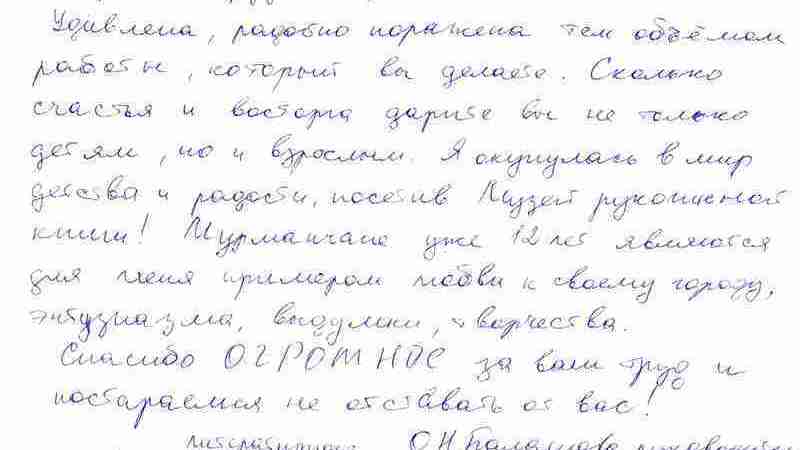 Удивлена, радостно поражена тем объёмом
работы, который вы делаете. Сколько
счастья и восторга дарите вы не только
детям, но и взрослым. Я окунулась в мир
детства и радости, посетив Музей рукописной
книги! Мурманчане уже 12 лет являются
для меня примером любви к своему городу,
энтузиазма, выдумки, творчества.
Спасибо ОГРОМНОЕ за ваш труд и
постараемся не отставать от вас!
О.Н. Балашова